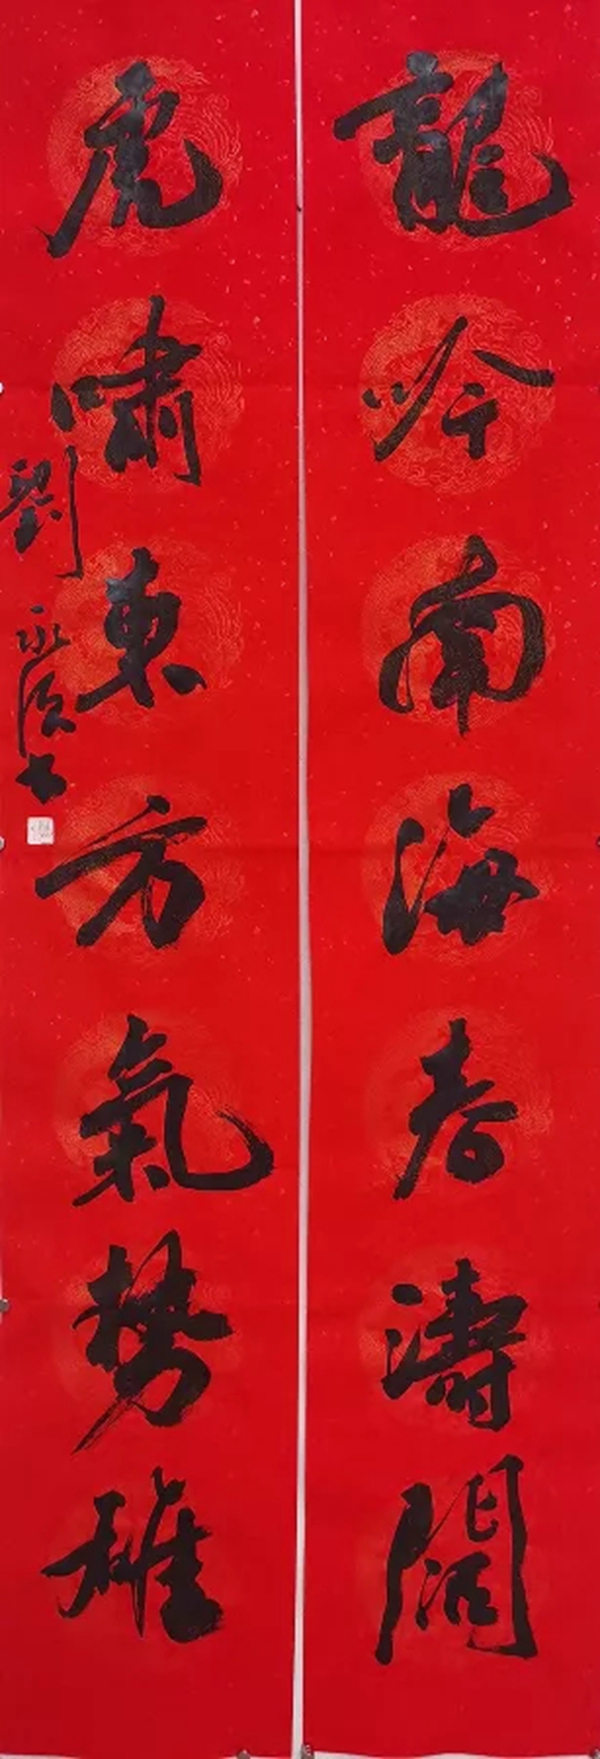 龍吟南海春濤闊
虎嘯東方氣勢雄
劉永清书